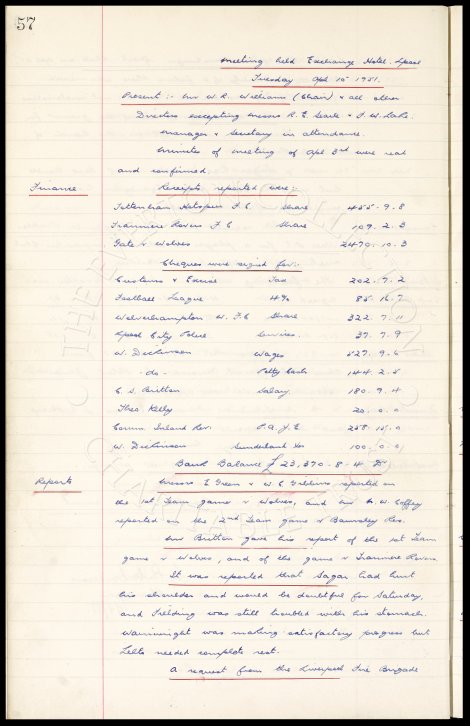 57
Meeting held Exchange Hotel. Lpool
Tuesday Apl 10 1951.
Present :- Mr W. R. Williams (Chair) & all other
Directors excepting Messrs R. E. Searle & J. W. Lake.
Manager & Secretary in attendance.
Minutes of meeting of Apl 3rd were read
and confirmed.
Finance
Receipts reported were:-
Tottenham Hotspurs F. C. Share 455 - 9 - 8
Tranmere Rovers F. C Share 109 - 2 - 3
Gate v Wolves 2479 - 10 - 3
Cheques were signed for:-
Customs & Excise Tax 202 - 7 - 2
Football League 4% 85 - 16 - 7
Wolverhampton W. F.C Share 322 - 7 - 11
Lpool City Police Services. 37 - 7 - 9
W. Dickinson Wages 527 - 9 - 6
- do - Petty Cash 144 - 2 - 5
C. S. Britton Salary. 180 - 9 - 4
Theo Kelly 20 - 0 - 0
Comm. Inland Rev. P. A. Y. E 258 - 15 - 0
W. Dickinson Sunderland Xes 100 - 0 - 0
Bank Balance £ 23,370 - 8 - 4 Dr
Reports
Messrs E Green & W. C. Gibbins reported on
the 1st Team game v Wolves, and Mr N. W. Coffey
reported on the 2nd Team game v Barnsley Res.
Mr Britton gave his report of the 1st Team
game v Wolves, and of the game v Tranmere Rovers.
It was reported that Sagar had hurt
his shoulder and would be doubtful for Saturday,
and Fielding was still troubled with his stomach.
Wainwright was making satisfactory progress but
Lello needed complete rest.
A request from the Liverpool Fire Brigade